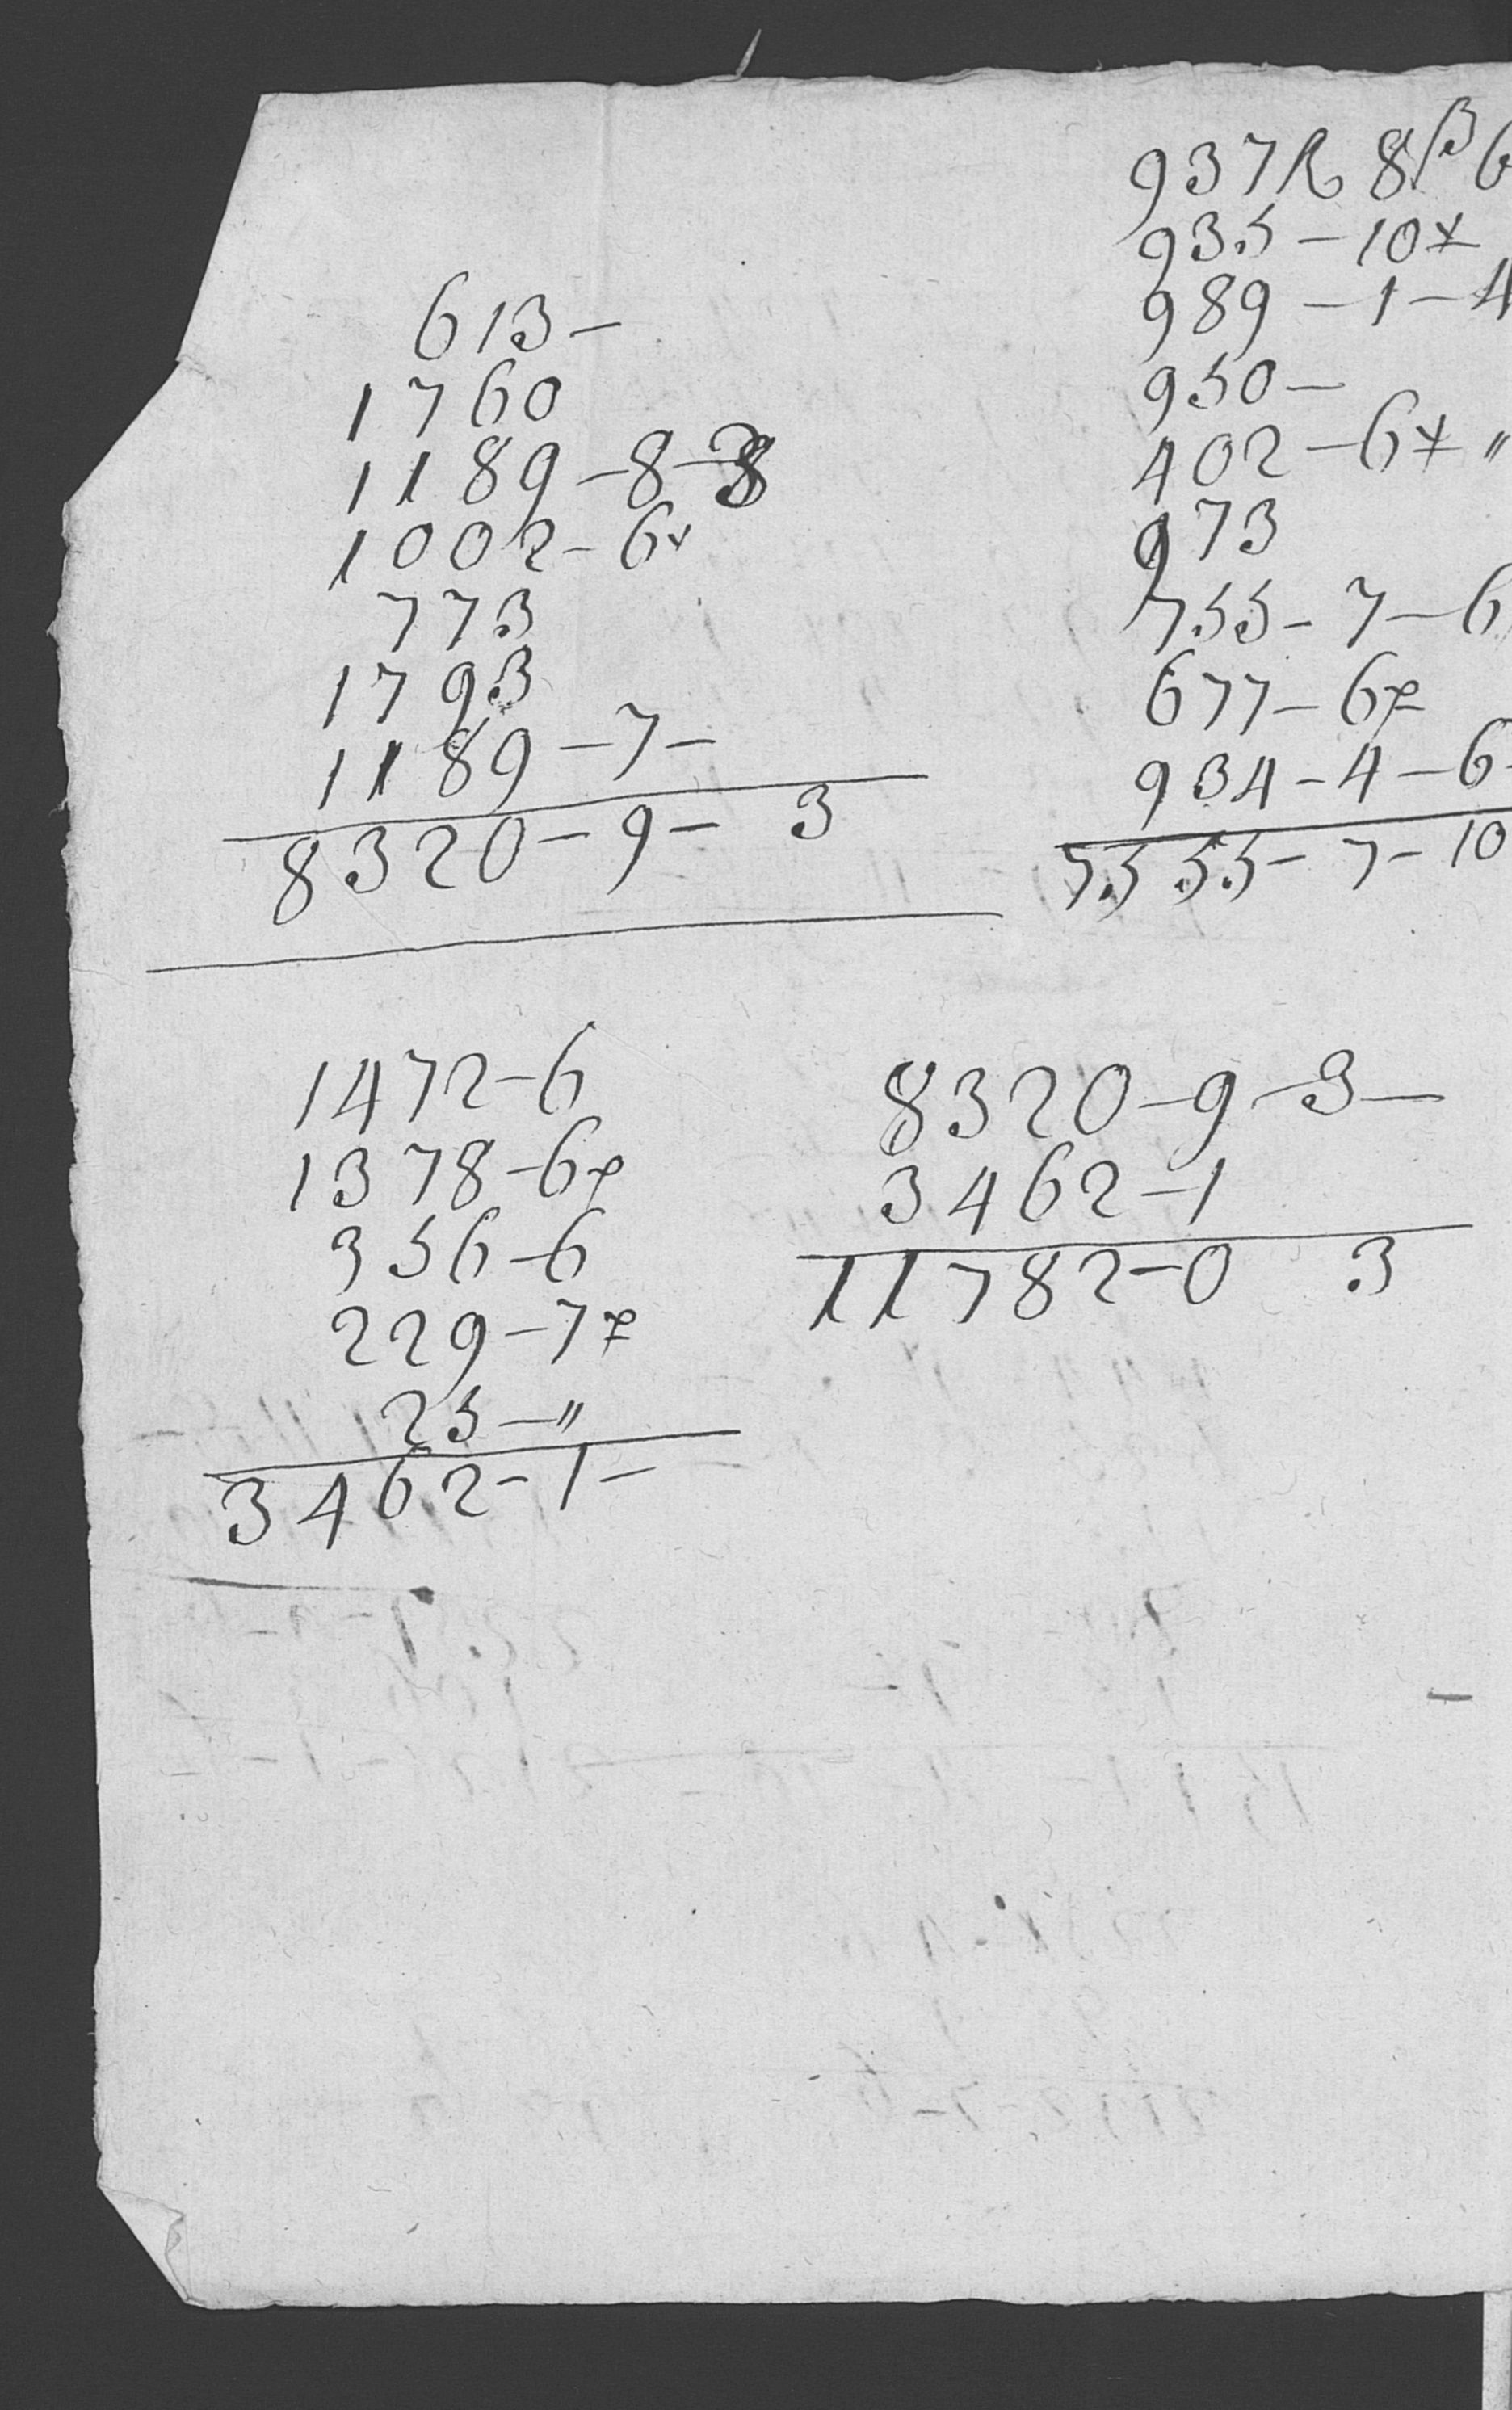 613 –
1760
1189 – 8 – 8
1002 – 6 x
773
1793
1189 – 7 –
8320 – 9 – 3
937 R 8 β 6
935 – 10 x
989 – 1 – 4
950 –
402 – 6 x "
973
755 – 7 – 6
677 – 6 x
934 – 4 – 6
7555 – 7 – 10
1472 – 6
1378 – 6 x
356 – 6
229 – 7 x
25 – "
3462 – 1 –
8320 – 9 – 3 –
3462 – 1
11782 – 0 3